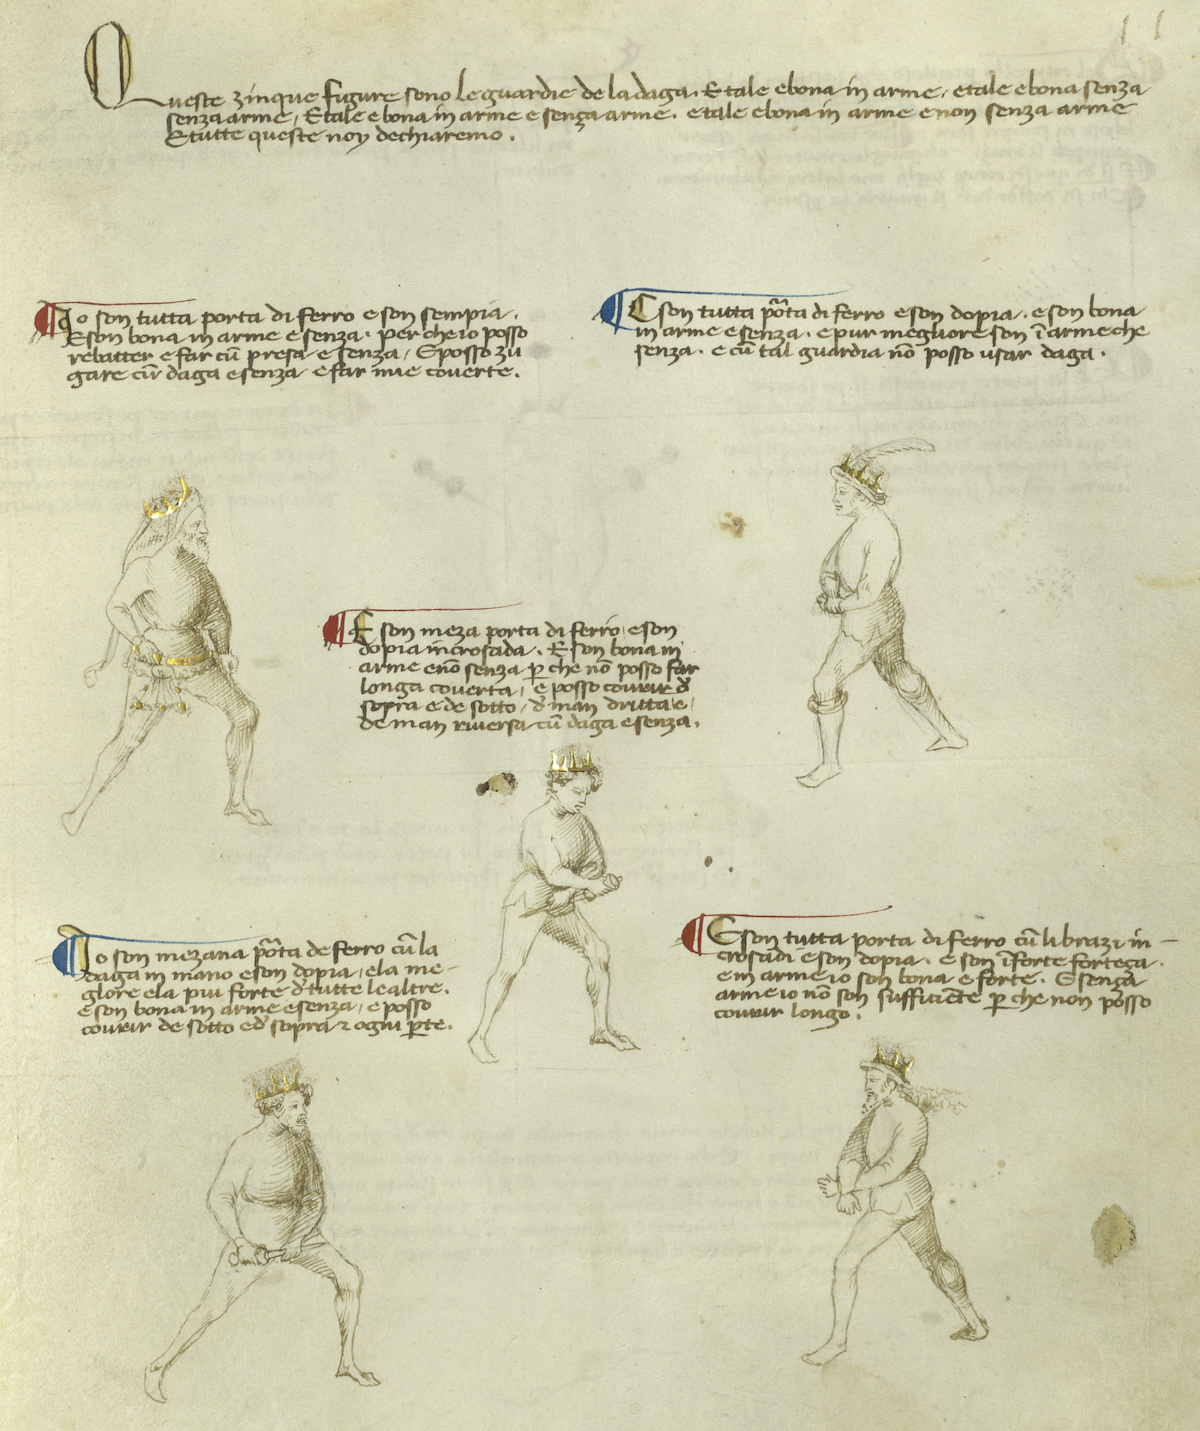 Queste zinque figure sono le guardie de la daga. E tale e bona in arme, e tale e bona senza
senza arme, E tale e bona in arme e senza arme. e tale e bona in arme e non senza arme
E tutte queste noy dechiaremo.
Io son tutta porta di ferro e son sempia.
E son bona in arme e senza. per che io posso
rebatter e far cū presa e senza, E posso zu
gare cū daga e senza e far mie coverte.
E son tutta pōta di ferro e son dopia. e son bona
in arme e senza. e pur megliore son ī arme che
senza. e cū tal guardia nō posso usar daga.
E son meza porta di ferro, e son
dopia incrosada. E son bona in
arme e nō senza p che nō posso far
longa coverta, e posso covrir d'
sopra e de sotto, d' man dritta e,
de man riversa cū daga e senza.
Io son mezana pōta de ferro cū la
daga in mano e son dopia, e la me-
glore e la piu forte d' tutte le altre.
E son bona in arme e senza, e posso
covrir de sotto e d' sopra ⁊ ogni pte.
E son tutta porta di ferro cū li brazi in-
crosadi e son dopia. e son ī forte forteça.
e in arme io son bona e forte. E sença
arme io nō son sufficiēte p che non posso
covrir longo.